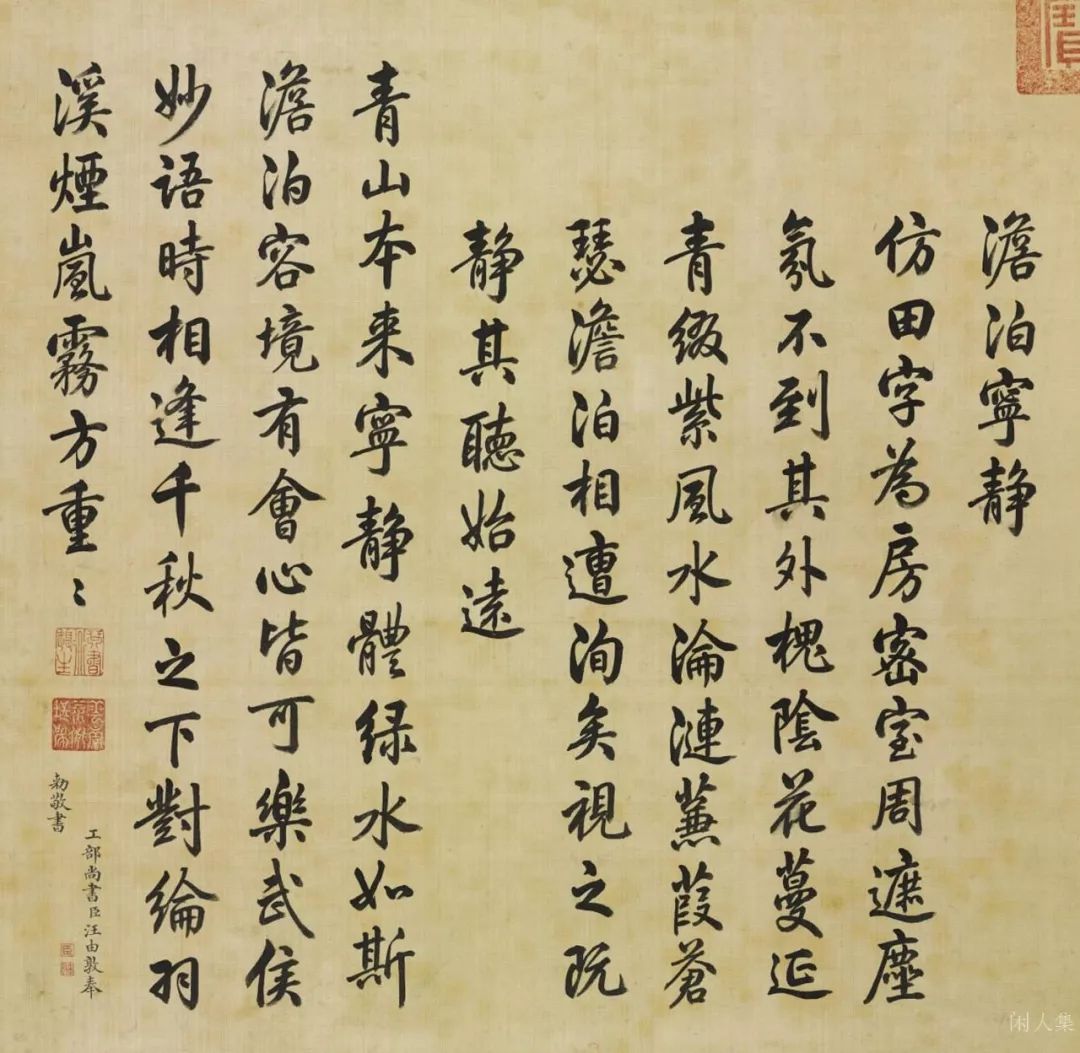 澹泊寧静
仿田字為房密室周遮塵
氛不到其外槐陰花蔓延
青綴紫風水淪漣蒹葭蒼
瑟澹泊相遭洵矣視之既
静其聽始遠
青山本来寧静體緑水如斯
澹泊容境有會心皆可樂武侯
妙語時相逢千秋之下對綸羽
溪煙嵐霧方重〻
工部尚書臣汪由敦奉
勅敬書
闲人集